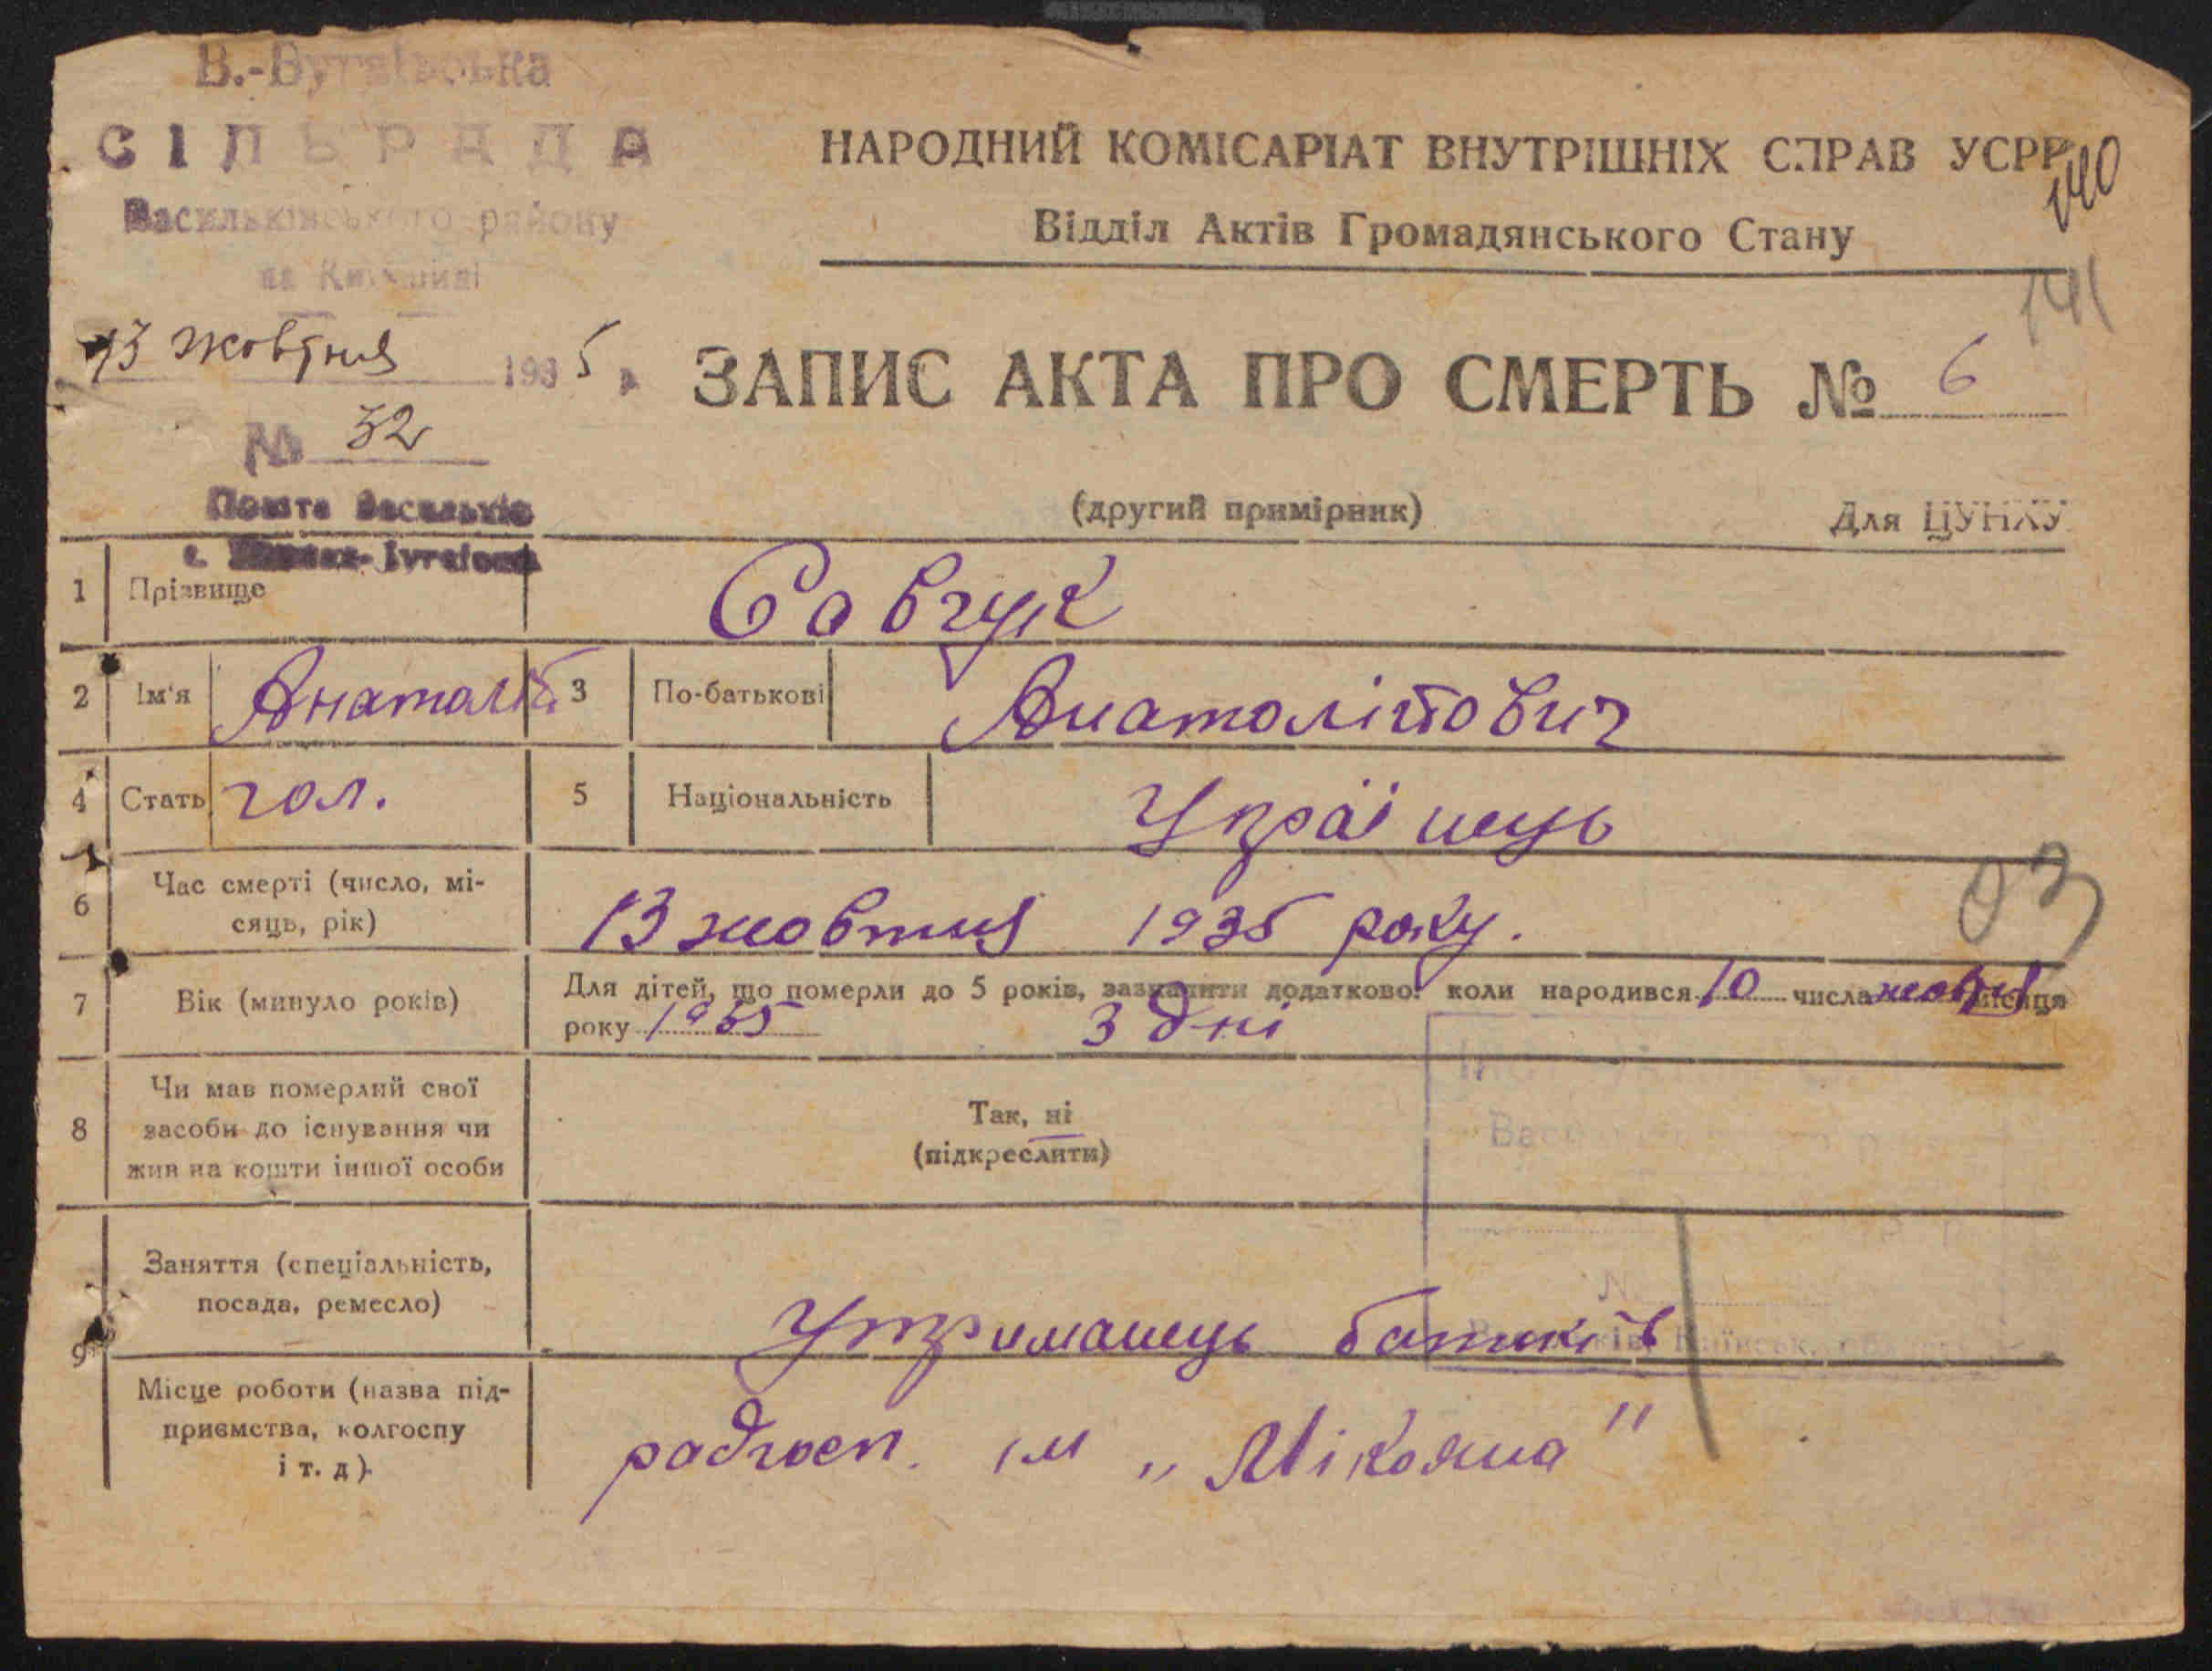 В.-Бугаївська
СІЛЬРАДА
Васильківського району
на Київщині
13 жовтня 1935 р.
№ 32
Пошта Васильків
с.
НАРОДНИЙ КОМІСАРІАТ ВНУТРІШНІХ СПРАВ УСРР
140
Відділ Актів Громадянського Стану
141
ЗАПИС АКТА ПРО СМЕРТЬ № 6
(другий примірник)
Для ЦУНХУ
1 Прізвище Савчук
2 Ім'я Анатолій 3 По-батькові Анатолійович
4 Стать чол. 5 Національність Українець
6 Час смерті (число, мі-
сяць, рік) 13 жовтня 1935 року.
03
7 Вік (минуло років) Для дітей, що померли до 5 років, зазначити додатково: коли народився 10 числа жовтня місяця
року 1935 3 дні
8 Чи мав померлий свої
засоби до існування чи
жив на кошти іншої особи
Так, ні
(підкреслити)
9 Заняття (спеціальність,
посада, ремесло) Утриманець батьків
Місце роботи (назва під-
приємства, колгоспу
і т. д). радгосп. ім „Мікояна"